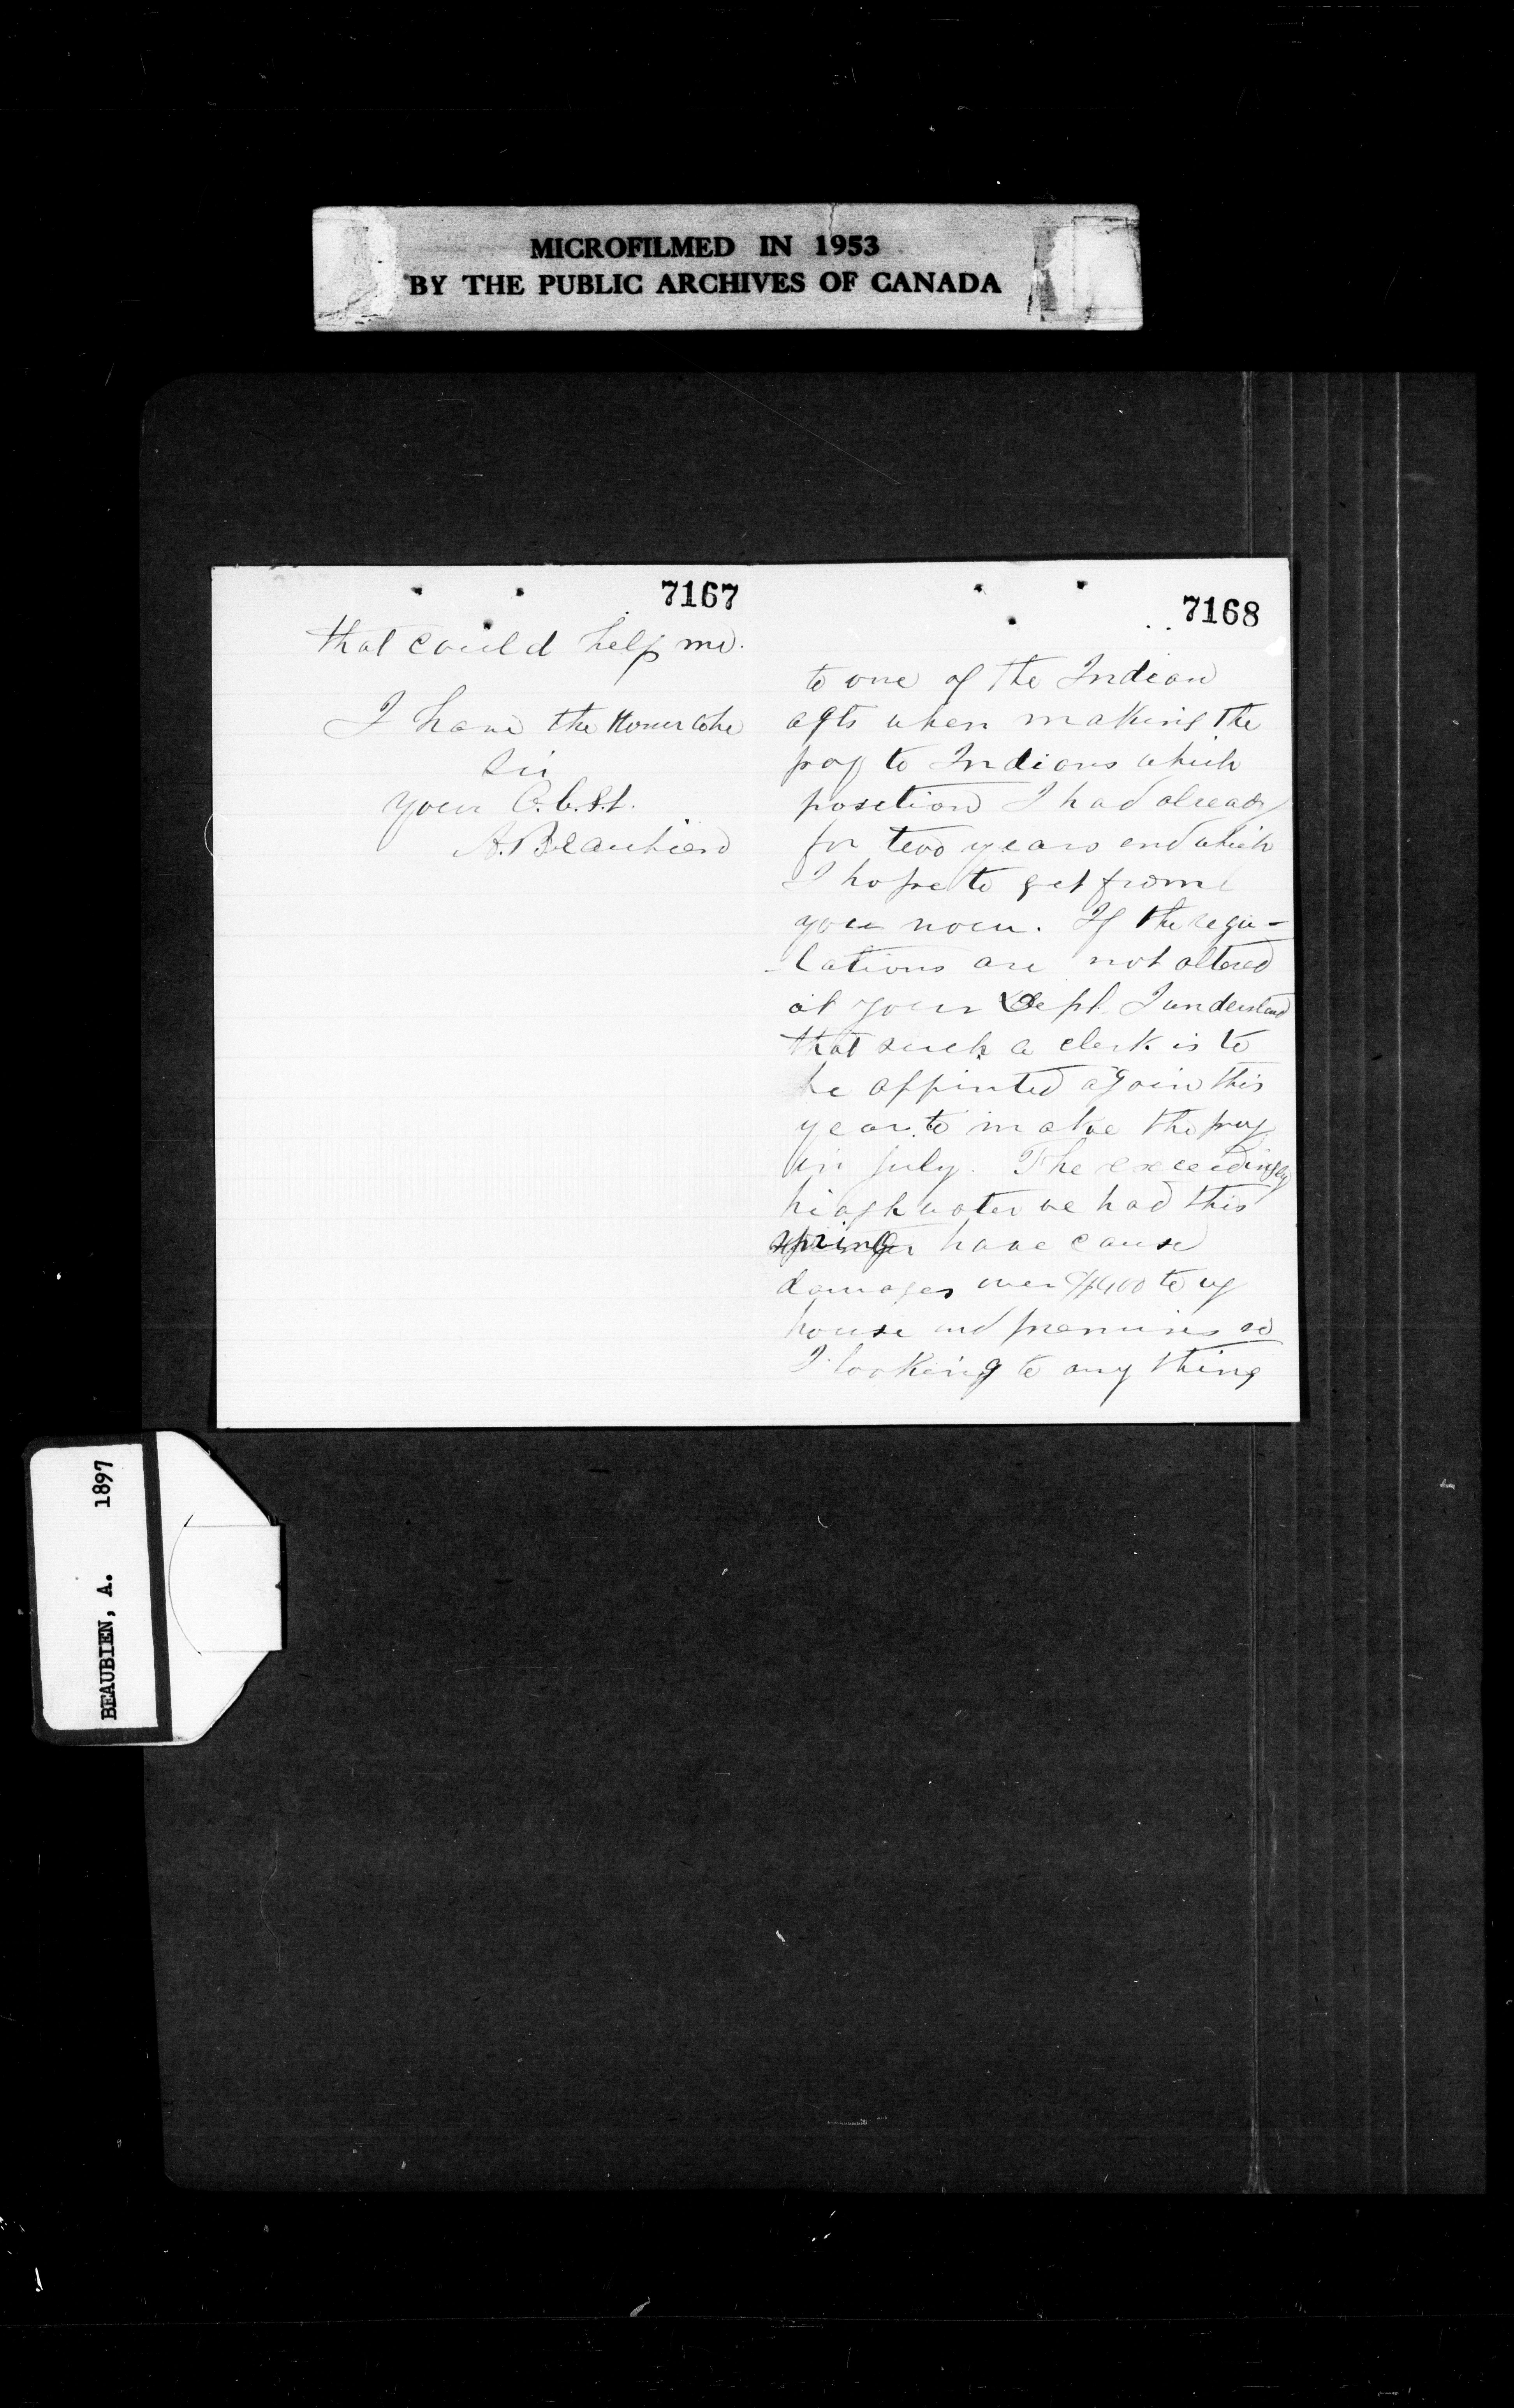 MICROFILMED IN 1953
BY THE PUBLIC ARCHIVES OF CANADA
7167
that could help me.
I have the Honor to be
Sir
your O.b.S.t.
A. Beaubien
7168
to one of the Indian
agts when making the
pay to Indians which
position I had already
for two years and which
I hope to get from
you now. If the regu-
-lations are not altered
at your Dept. I understand
that such a clerk is to
be appinted again this
year to make the pay
in july. The exceedingly
high water we had this
spring have cause
damages over $400 to my
house and premises so
I looking to any thing
BEAUBIEN, A. 1897